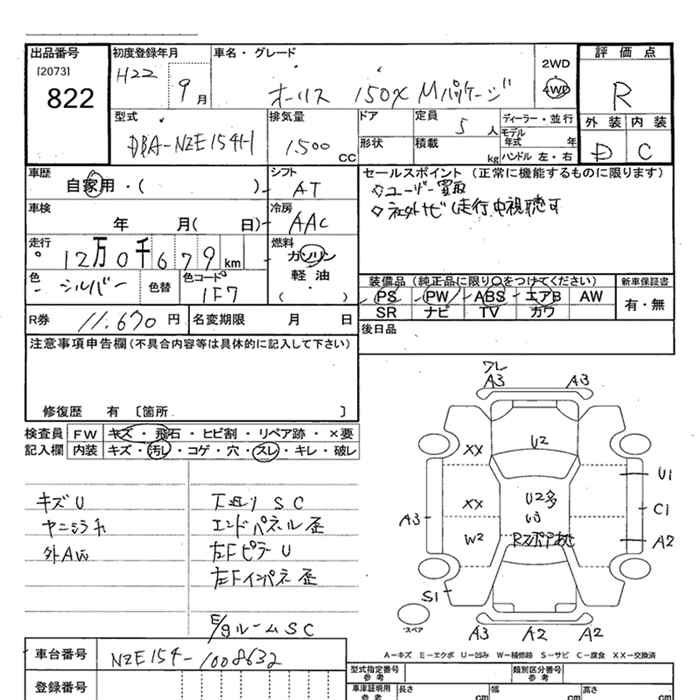 出品番号 初度登録年月 車名・グレード 評価点
[2073] H22 2WD
822 9月 オーリス 150X Mパッケージ 4WD R
型式 排気量 ドア 定員 ディーラー・並行 外装 内装
DBA-NZE154H 1500CC 5人 モデル年式 年 D C
形状 積載 kg ハンドル 左・右
車歴 シフト セールスポイント (正常に機能するものに限ります)
自家用・( ) AT ユーザー買取
車検 冷房 社外ナビ(走行中視聴可
年 月( 日) AAC
走行 燃料
12万0千679km ガソリン
軽油
( )
装備品(純正品に限り〇をつけてください) 新車保証書
色 シルバー 色替 色コード 1F7
PS PW ABS エアB AW 有・無
SR ナビ TV カワ
R券 11,670円 名変期限 月 日 後日品
注意事項申告欄(不具合内容等は具体的に記入して下さい)
修復歴 有 [箇所 ]
検査員 FW キズ・飛石・ヒビ割・リペア跡・×要
記入欄 内装 キズ・汚レ・コゲ・穴・スレ・キレ・破レ
キズU 下廻り SC
エンドパネル歪
外AW 左FピラーU
左Fインパネ歪
E/gルームSC
フレ
A3 A3
XX U2
U1
XX U2多 C1
A3
W2 A2
S1
スペア A3 A2 A2
A-キズ E-エクボ U-凹み W-補修跡 S-サビ C-腐食 XX-交換済
車台番号 NZE154-1008632
登録番号
型式指定番号 参考 類別区分番号 参考
車庫証明用 参考 長さ cm 幅 cm 高さ cm